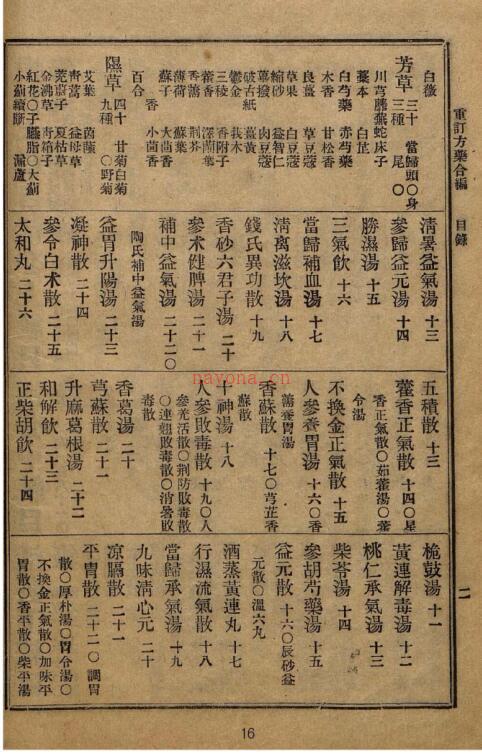 重訂方藥合編 目錄 二
白薇
芳草 三十三種 當歸頭〇身尾〇
川芎 蘼蕪 蛇床子
藁本 白芷
白芍藥 赤芍藥
木香 甘松香
良薑 草豆蔻
草果 白豆蔻
縮砂 益智仁
蓽撥 肉豆蔻
破古紙 薑黃
鬱金 莪朮
三稜 香附子
藿香 澤蘭葉
香薷 荊芥
薄荷 蘇葉
蘇子 大茴香 小茴香
百合
隰草 四十九種 甘菊 白菊〇野菊
艾葉 茵蔯
靑蒿 益母草
茺蔚子 夏枯草
金沸草 靑箱子
紅花〇子 臙脂〇大薊
小薊 續斷 漏盧
淸暑益氣湯 十三
參歸益元湯 十四
勝濕湯 十五
三氣飮 十六
當歸補血湯 十七
淸离滋坎湯 十八
錢氏異功散 十九
香砂六君子湯 二十
參朮健脾湯 二十一
補中益氣湯 二十二〇
陶氏補中益氣湯
益胃升陽湯 二十三
凝神散 二十四
參令白朮散 二十五
太和丸 二十六
五積散 十三
藿香正氣散 十四〇星
香正氣散〇茹藿湯〇藿
令湯
不換金正氣散 十五
人參養胃湯 十六〇香
薷養胃湯
香蘇散 十七〇芎芷香
蘇散
十神湯 十八
人參敗毒散 十九〇人
參羌活散〇荊防敗毒散
〇連翹敗毒散〇消暑敗
毒散
香葛湯 二十
芎蘇散 二十一
升麻葛根湯 二十二
和解飮 二十三
正柴胡飮 二十四
桅豉湯 十一
黃連解毒湯 十二
桃仁承氣湯 十三
柴苓湯 十四
參胡芍藥湯 十五
益元散 十六〇辰砂益
元散〇溫六丸
酒蒸黃連丸 十七
行濕流氣散 十八
當歸承氣湯 十九
九味淸心元 二十
凉膈散 二十一
平胃散 二十二〇調胃
散〇厚朴湯〇胃令湯〇
不換金正氣散〇加味平
胃散〇香平散〇柴平湯
nayona.cn
16